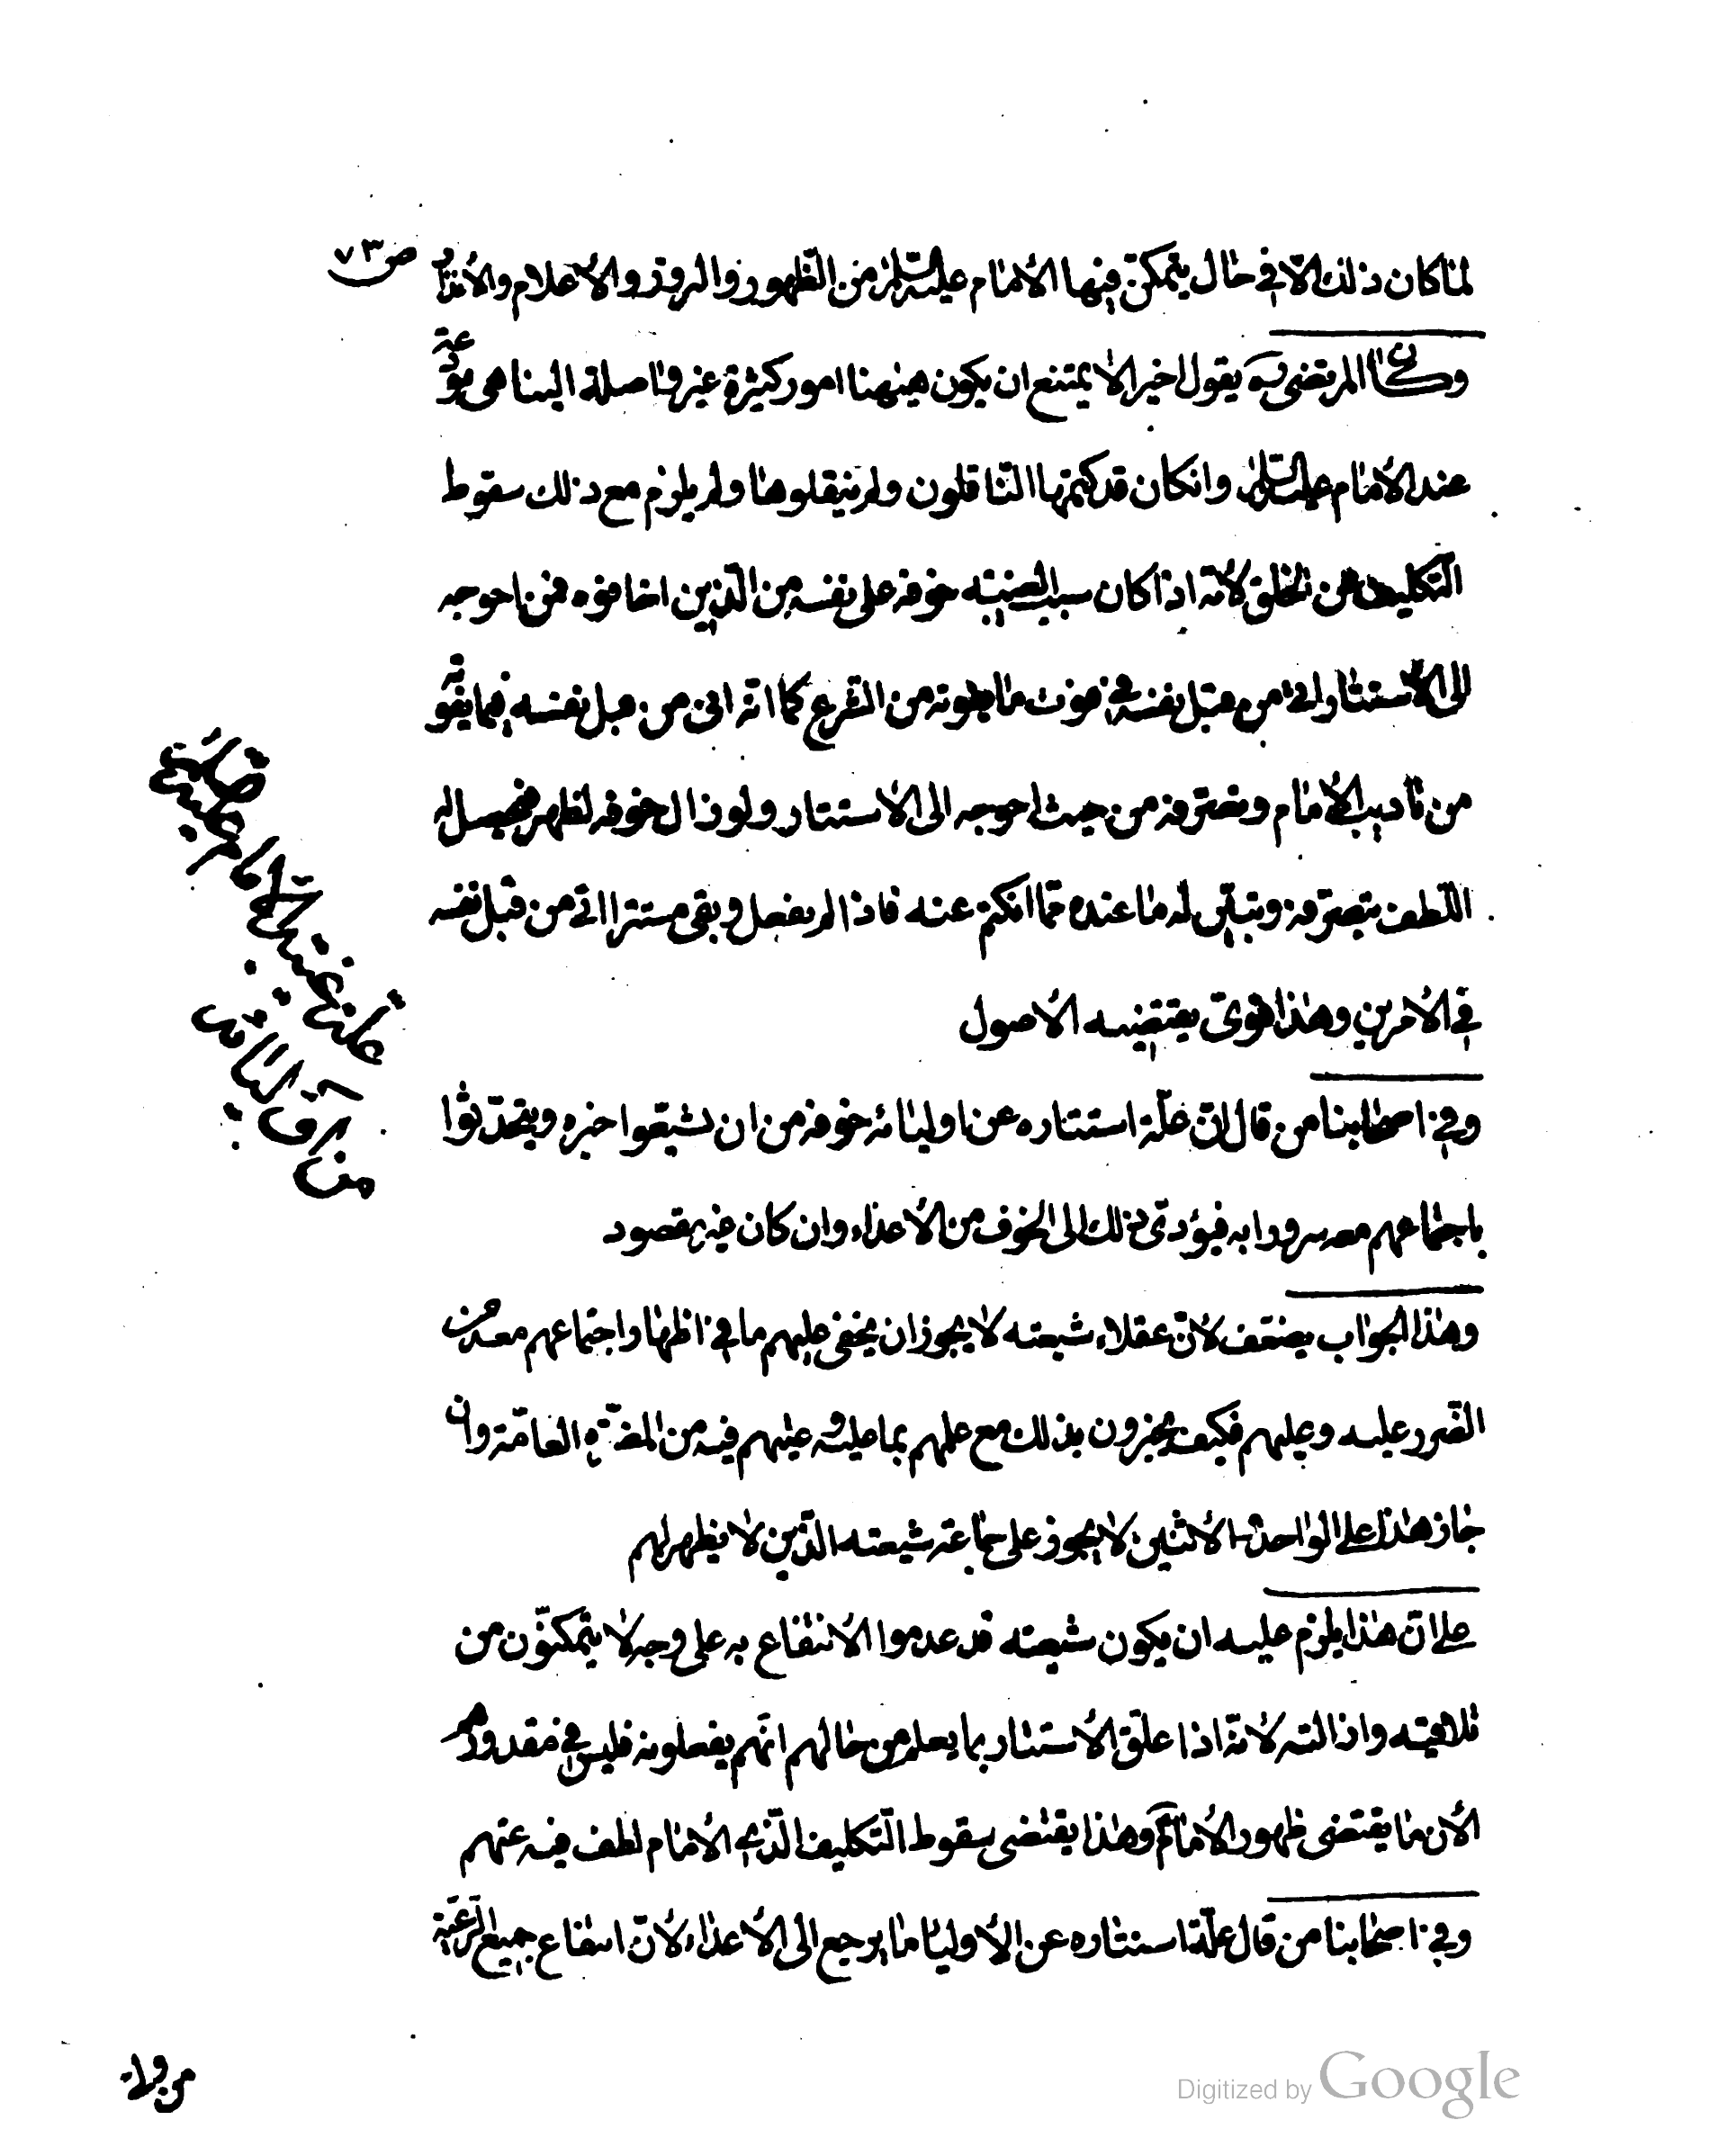 لما كان ذلك الا في حال يتمكن فيها الامام عليه السلام من الظهور والبروز والاعلام والانذار
ص ٧٣
وكان المرتضى ره يقول اخيرا لا يمتنع ان يكون هيهنا امور كثيرة غير واصلة الينا هى مودعة
عند الامام عليه السلام وانكان قد كتمها الناقلون ولم ينقلوها ولم يلزم مع ذلك سقوط
التكليف عن الخلق لانه اذا كان سبب الغيبة خوفه على نفسه من الذين اخافوه فمن احوجه
الى الاستتار اتى من قبل نفسه في فوت ما يفوته من الشرع كما انه اتى من قبل نفسه فيما يفوته
من تاديب الامام وتصرفه من حيث احوجه الى الاستتار ولو زال خوفه لظهر فيحصل له
اللطف بتصرفه وتبين له ما عنده مما انكتم عنه فاذا لم يفعل وبقى مستترا اتى من قبل نفسه
في الامرين وهذا قوى يقتضيه الاصول
وفي اصحابنا من قال ان علة استتاره عن اوليائه خوفه من ان يشيعوا خبره ويتحدثوا
باجتماعهم معه سرورا به فيؤدى ذلك الى الخوف من الاعداء وان كان غير مقصود
وهذا الجواب يضعف لان عقلاء شيعته لا يجوز ان يخفى عليهم ما في اظهار اجتماعهم معه من
الضرر عليه وعليهم فكيف يخبرون بذلك مع علمهم بما عليه وعليهم فيه من المضرة العامة وان
جاز هذا على الواحد والاثنين لا يجوز على جماعة شيعته الذين لا يظهر لهم
على ان هذا يلزم عليه ان يكون شيعته قد عدموا الانتفاع به على وجه لا يتمكنون من
تلافيه وازالته لانه اذا علق الاستتار بما يعلم من حالهم انهم يفعلونه فليس في مقدورهم
الان ما يقتضى ظهور الامام ع وهذا يقتضى سقوط التكليف الذى الامام لطف فيه عنهم
وفي اصحابنا من قال علة استتاره عن الاولياء ما يرجع الى الاعداء لان انتفاع جميع الرعية
من ولى
Digitized by Google